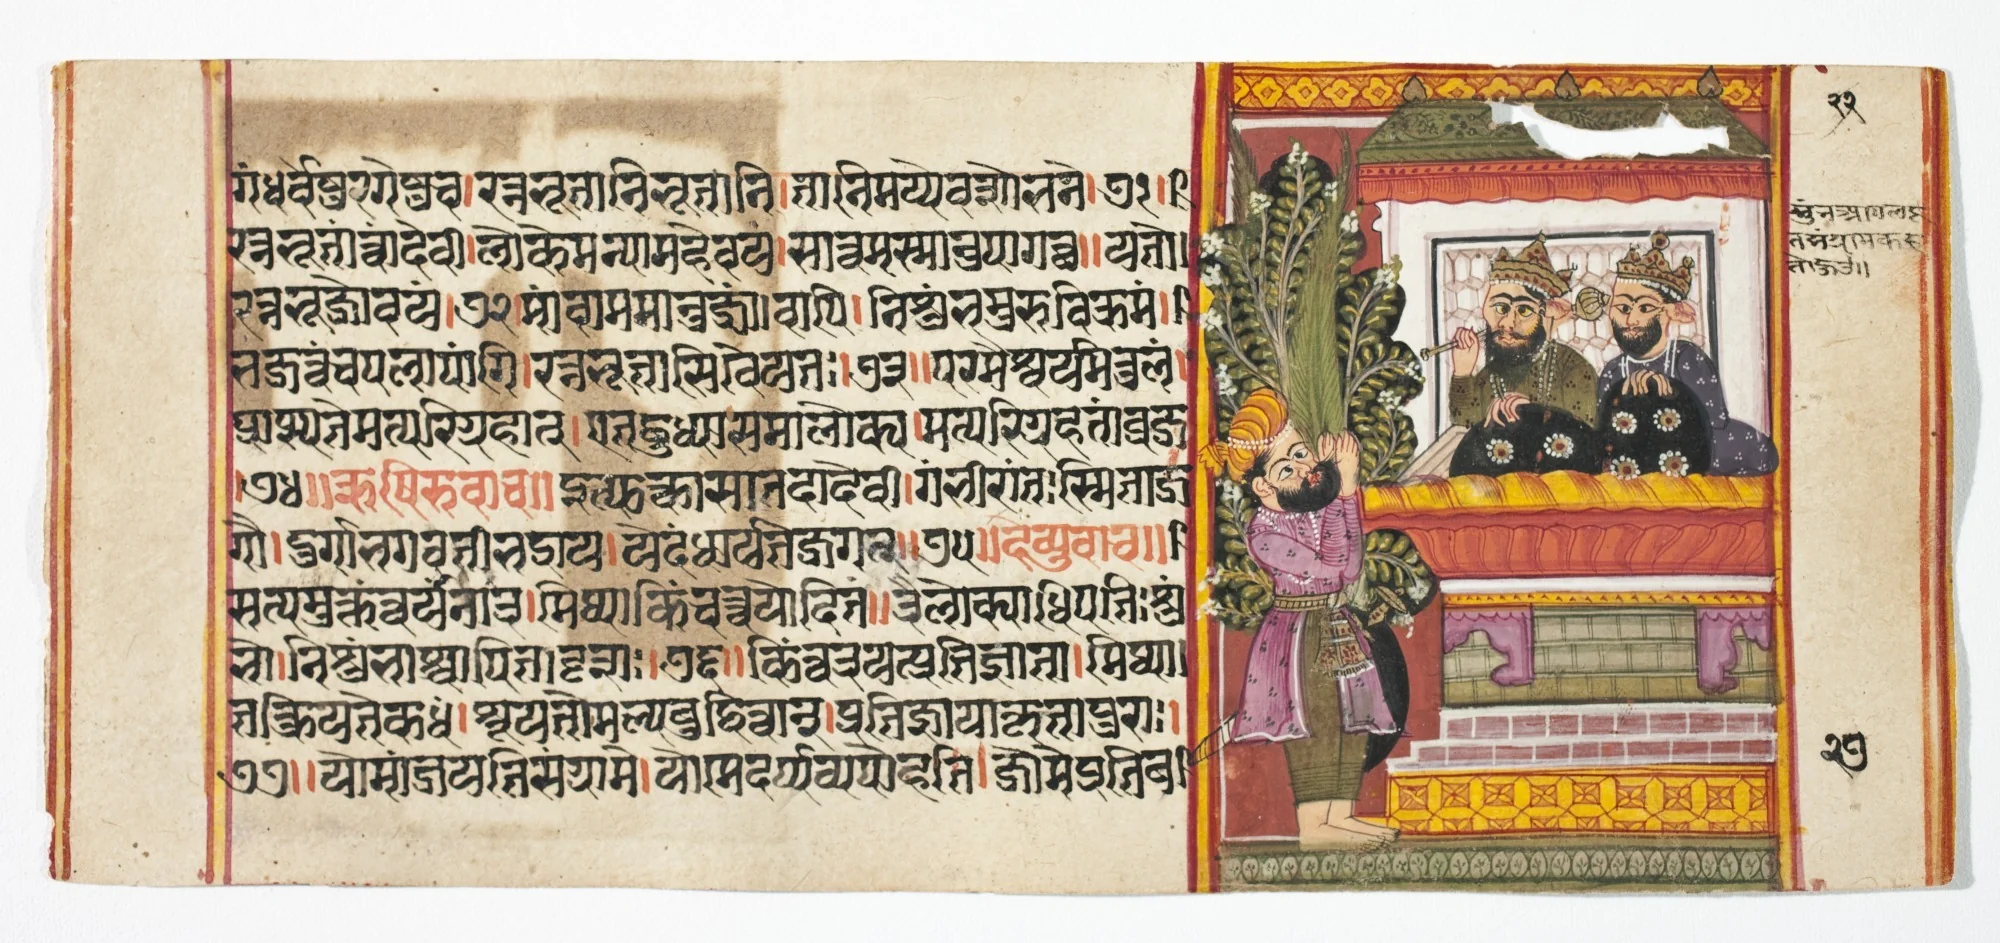 गंधर्वेषूरगेषूच।रत्नभूतानिभूतानि।तानिमय्येवशोभने।७१॥
रत्नभूतांत्वांदेवी।लोकेमन्यामहेवयं।सात्वमस्मानुपागच्छ॥यतो
रत्नभूजोवयं।७२मांवाममानुजं।वापि।निशुंभमुरुविक्रमं।
भजत्वंचपलापांगि।रत्नभूतासिवैयतः।७३॥परमैश्वर्यमतुलं
प्राप्स्यसेमत्परिग्रहात।एतद्बुध्यासमालोक्य।मत्परिग्रहतांव्रज
।७४॥ऋषिरुवाच॥इत्युक्तासातदादेवी।गंभीरांतःस्मिताज
गौ।दुर्गाभगवतीभद्राय।येदंधार्यतेजगत॥७५॥देव्युवाच॥
सत्यमुक्तंत्वयंनात्र।मिथ्याकिंचत्वयोदितं॥त्रैलोक्याधिपतिःशुं
भो।निशुंभोश्चापितादृशः।७६॥किंत्वत्रयत्प्रतिज्ञाता।मिथ्या।
तक्रियतेकथं।श्रूयतोमल्पबुद्धित्वात।प्रतिज्ञायाकृतापुराः।
७७॥योमांजयतिसंग्रामे।योमेदर्पव्यपोहति।जोमेप्रतिब।
२२
२७